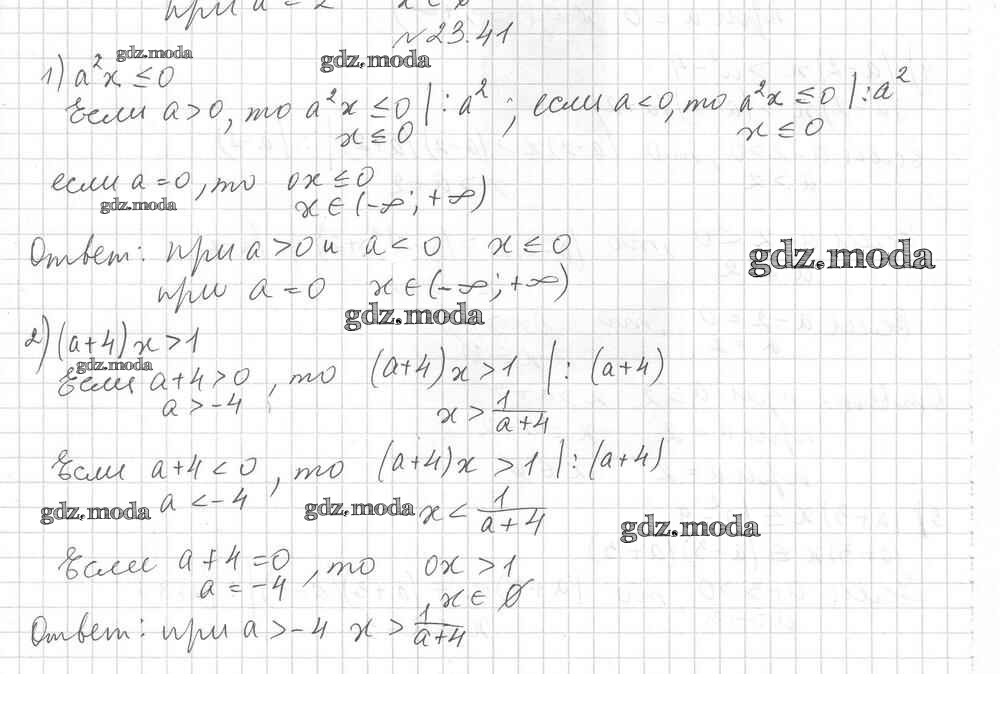 при a = 2 x < 0
№23.41
gdz.moda gdz.moda
1) a²x ≤ 0
Если a > 0, то a²x ≤ 0 | : a² ; если a < 0, то a²x ≤ 0 | : a²
x ≤ 0 x ≤ 0
если a = 0, то 0x ≤ 0
gdz.moda x ∈ (-∞; +∞)
Ответ: при a > 0 и a < 0 x ≤ 0
gdz.moda
при a = 0 x ∈ (-∞; +∞)
gdz.moda
2) (a+4)x > 1
gdz.moda
Если a+4 > 0, то (a+4)x > 1 | : (a+4)
a > -4 x > 1/(a+4)
Если a+4 < 0, то (a+4)x > 1 | : (a+4)
gdz.moda a < -4 gdz.moda x < 1/(a+4)
gdz.moda
Если a+4 = 0, то 0x > 1
a = -4 x ∈ ∅
Ответ: при a > -4 x > 1/(a+4)